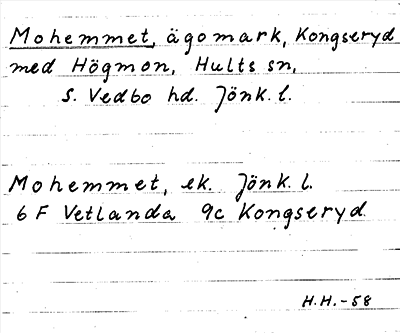 Mohemmet, ägomark, Kongseryd
med Högmon, Hults sn,
S. Vedbo hd. Jönk. l.
Mohemmet, ek. Jönk. l.
6 F Vetlanda 9c Kongseryd.
H.H.-58